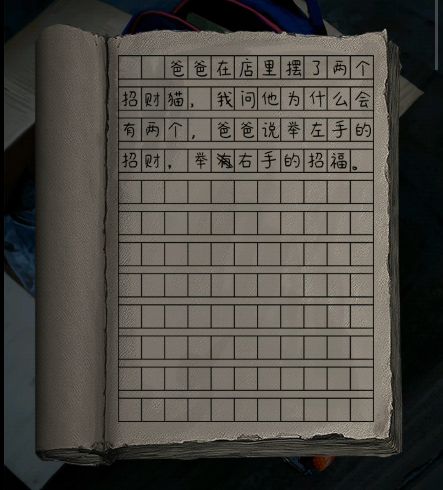 爸爸在店里摆了两个
招财猫，我问他为什么会
有两个，爸爸说举左手的
招财，举右手的招福。